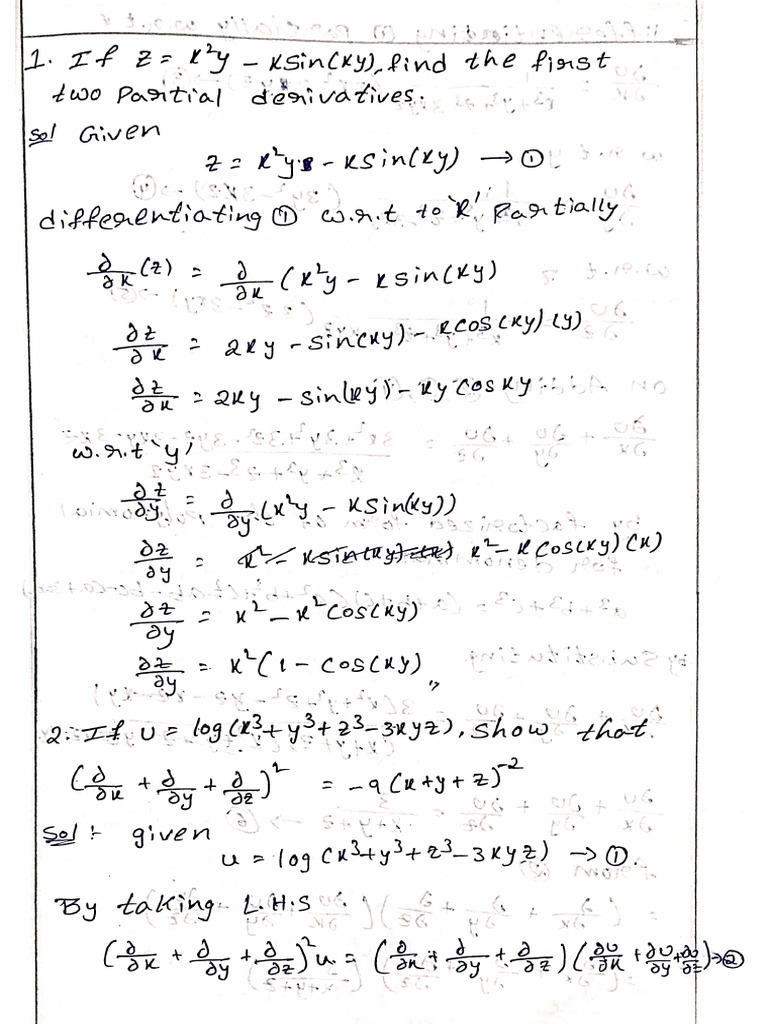 1. If z = x²y - xsin(xy), find the first
two Partial derivatives.
Sol Given
z = x²y - xsin(xy) → ①
differentiating ① w.r.t to 'x' Partially
∂/∂x (z) = ∂/∂x (x²y - xsin(xy)
∂z/∂x = 2xy - sin(xy) - xcos(xy)(y)
∂z/∂x = 2xy - sin(xy) - xy cosxy
w.r.t 'y'
∂z/∂y = ∂/∂y (x²y - xsin(xy))
∂z/∂y = x² - xcos(xy)(x)
∂z/∂y = x² - x²cos(xy)
∂z/∂y = x²(1 - cos(xy) ,,
2. If u = log(x³+y³+z³-3xyz), show that.
(∂/∂x + ∂/∂y + ∂/∂z)² = -9(x+y+z)⁻²
Sol :- given
u = log(x³+y³+z³-3xyz) → ①.
By taking L.H.S
(∂/∂x + ∂/∂y + ∂/∂z)²u = (∂/∂x + ∂/∂y + ∂/∂z)(∂u/∂x + ∂u/∂y + ∂u/∂z) → ②